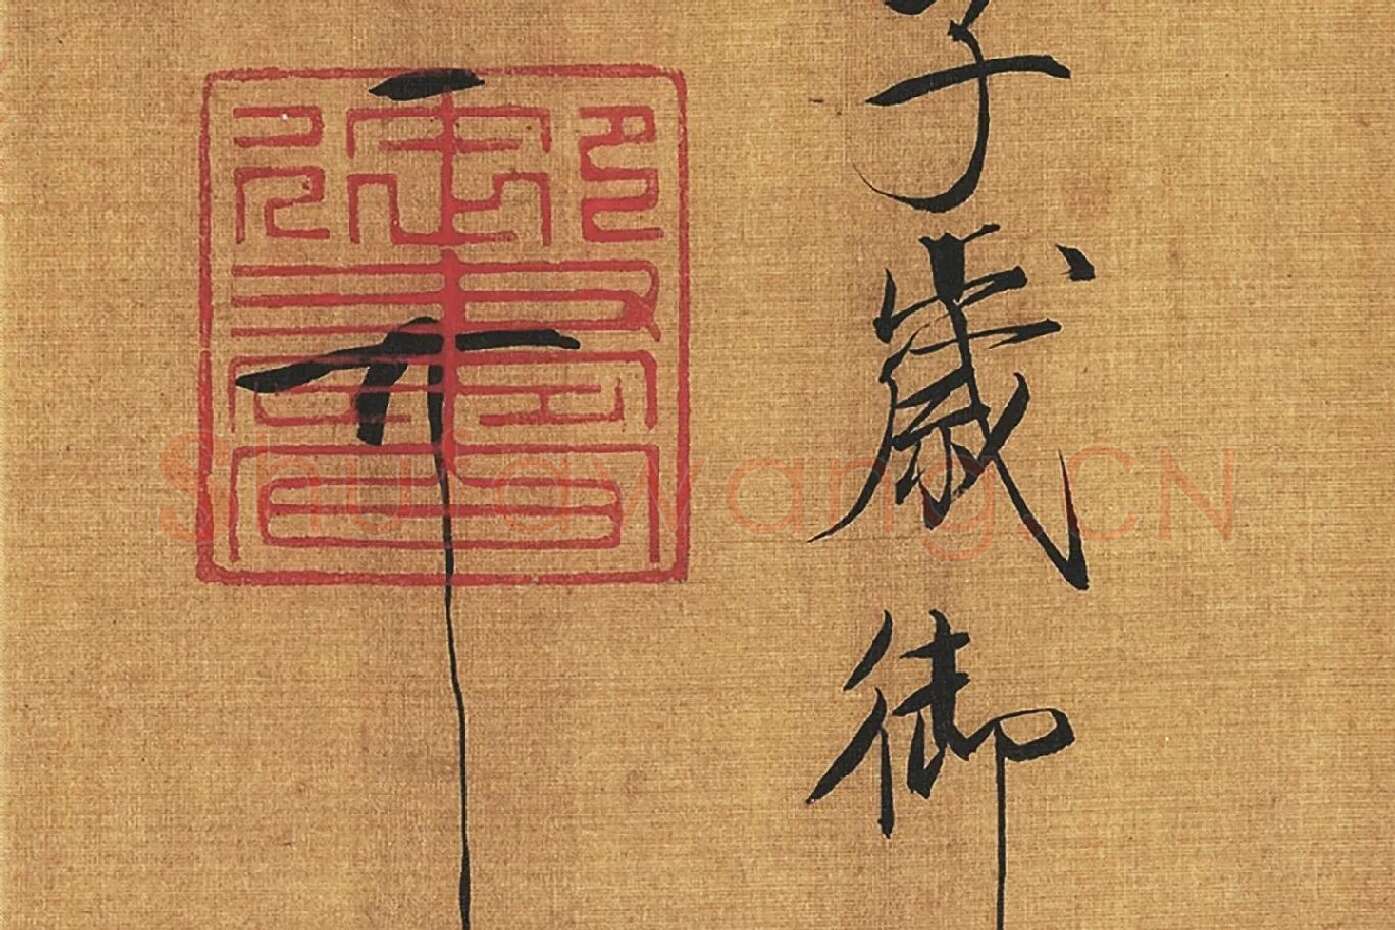 子歲御
御書
Shufawang.CN